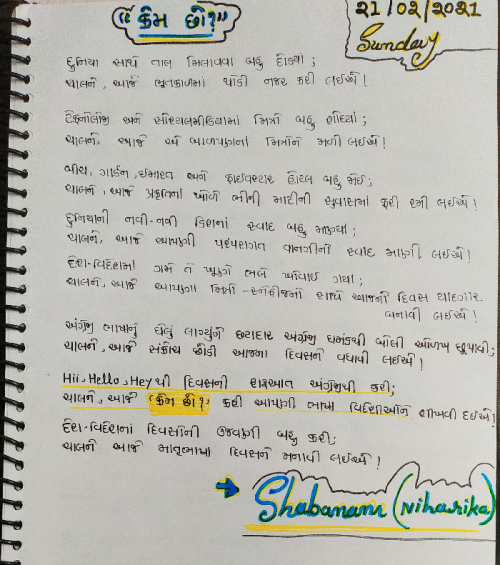 “કેમ છો?”
21/02/2021
Sunday
દુનિયા સાથે તાલ મિલાવવા બહુ દોડ્યા;
ચાલને, આજે ભૂતકાળમાં થોડી નજર કરી લઈએ!
ટેકનોલોજી અને સોશ્યલમીડિયામાં મિત્રો બહુ શોધ્યા;
ચાલને, આજે એ બાળપણના મિત્રોને મળી લઈએ!
બીચ, ગાર્ડન, ઈમારત અને ફાઈવસ્ટાર હોટલ બહુ જોઈ;
ચાલને, આજે પ્રકૃતિનાં ખોળે ભીની માટીની સુવાસમાં ફરી રમી લઈએ!
દુનિયાની નવી-નવી ડિશનાં સ્વાદ બહુ માણ્યા;
ચાલને, આજે આપણી પરંપરાગત વાનગીનો સ્વાદ માણી લઈએ!
દેશ-વિદેશમાં ગમે તે ખૂણે ભલે ખોવાઈ ગયા;
ચાલને, આજે આપણા મિત્રો-સ્નેહીજનો સાથે આજનો દિવસ યાદગાર
બનાવી લઈએ!
અંગ્રેજી ભાષાનું ઘેલું લાગ્યુંને છટાદાર અંગ્રેજી ઘમંડથી બોલી ઓળખ છૂપાવી;
ચાલને, આજે સંકોચ છોડી આજના દિવસને વધાવી લઈએ!
Hii, Hello, Hey થી દિવસની શરૂઆત અંગ્રેજીથી કરી;
ચાલને, આજે “કેમ છો?” કહી આપણી ભાષા વિદેશીઓને શીખવી દઈએ!
દેશ-વિદેશનાં દિવસોની ઉજવણી બહુ કરી;
ચાલને આજે માતૃભાષા દિવસને મનાવી લઈએ!
Shabanam (Niharika)